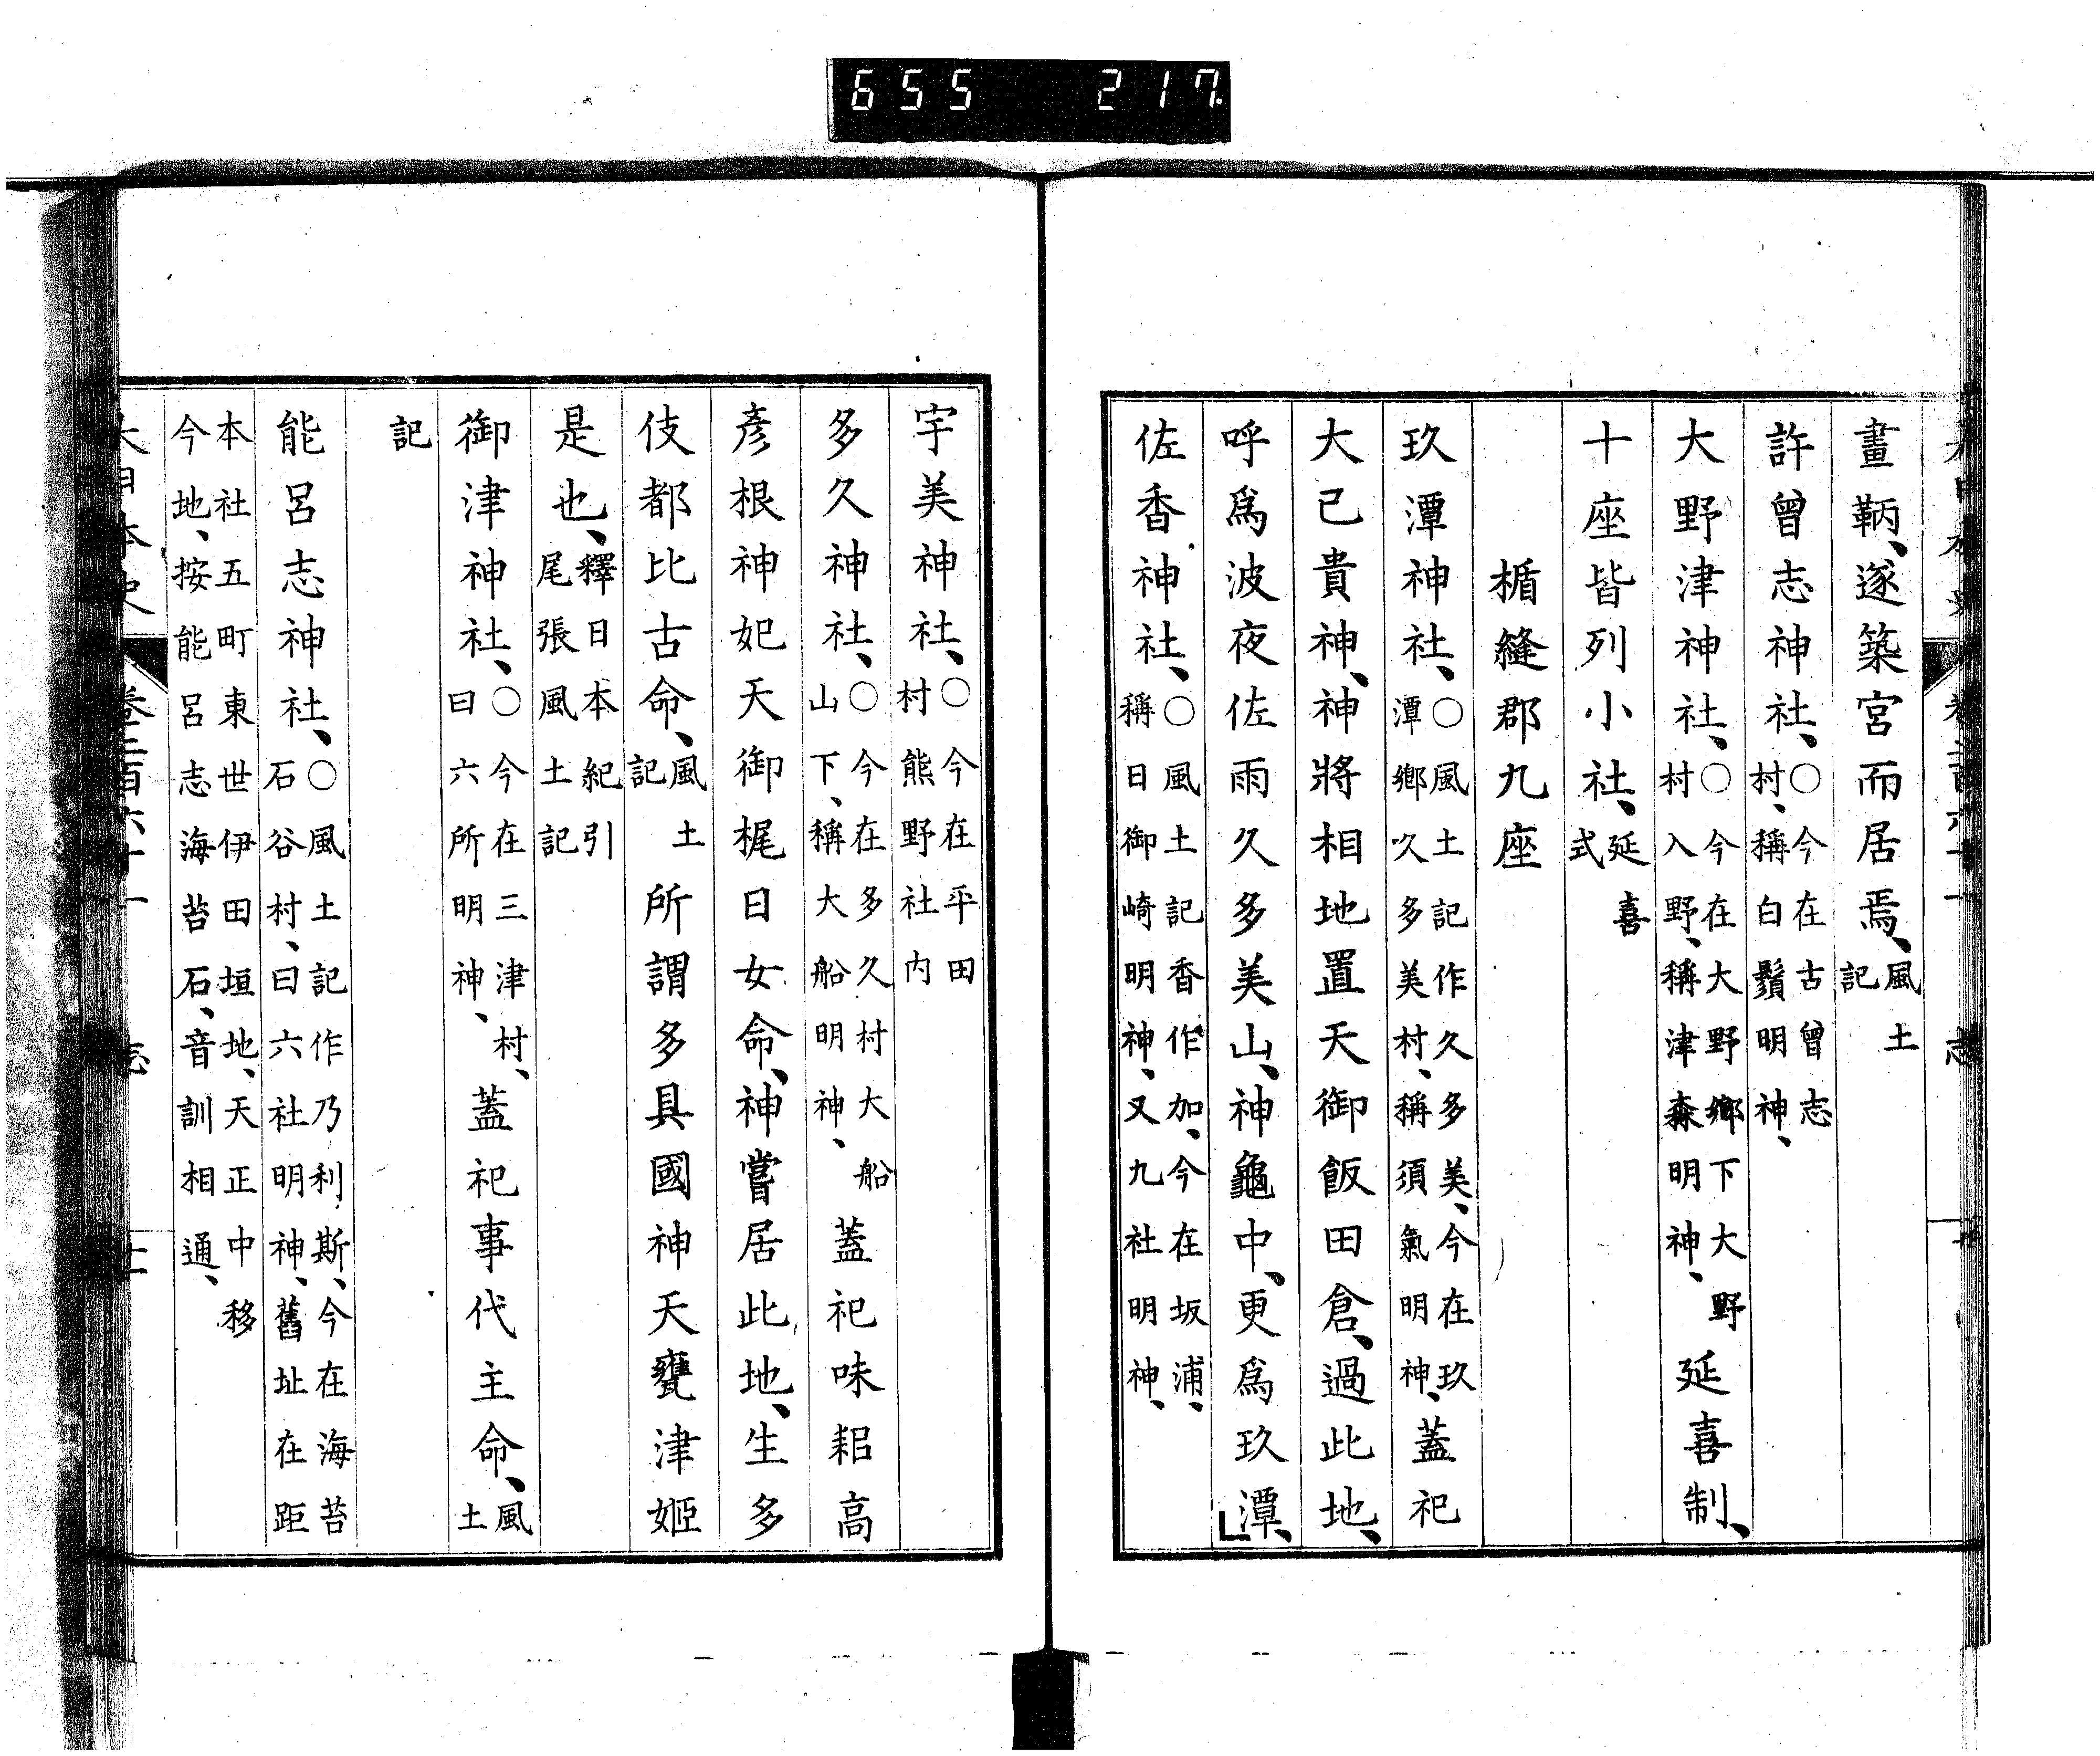 655 217.
畫鞆、遂築宮而居焉、風土記
許曾志神社、○今在古曾志村、稱白鬚明神、
大野津神社、○今在大野鄉下大野村入野、稱津森明神、延喜制、
十座皆列小社、延喜式
楯縫郡九座
玖潭神社、○風土記作久多美、今在玖潭鄉久多美村、稱須氣明神、蓋祀
大已貴神、神將相地置天御飯田倉、過此地、
呼爲波夜佐雨久多美山、神龜中、更爲玖潭、
佐香神社、○風土記香作加、今在坂浦、稱日御崎明神、又九社明神、
宇美神社、○今在平田村熊野社内
多久神社、○今在多久村大船山下、稱大船明神、蓋祀味耜高
彥根神妃天御梶日女命、神嘗居此地、生多
伎都比古命、風土記所謂多具國神天甕津姬
是也、釋日本紀引尾張風土記
御津神社、○今在三津村、曰六所明神、蓋祀事代主命、風土
記
能呂志神社、○風土記作乃利斯、今在海苔石谷村、曰六社明神、舊址在距
本社五町東世伊田垣地、天正中移今地、按能呂志海苔石、音訓相通、
大日本史 卷二百六十一 志 十一